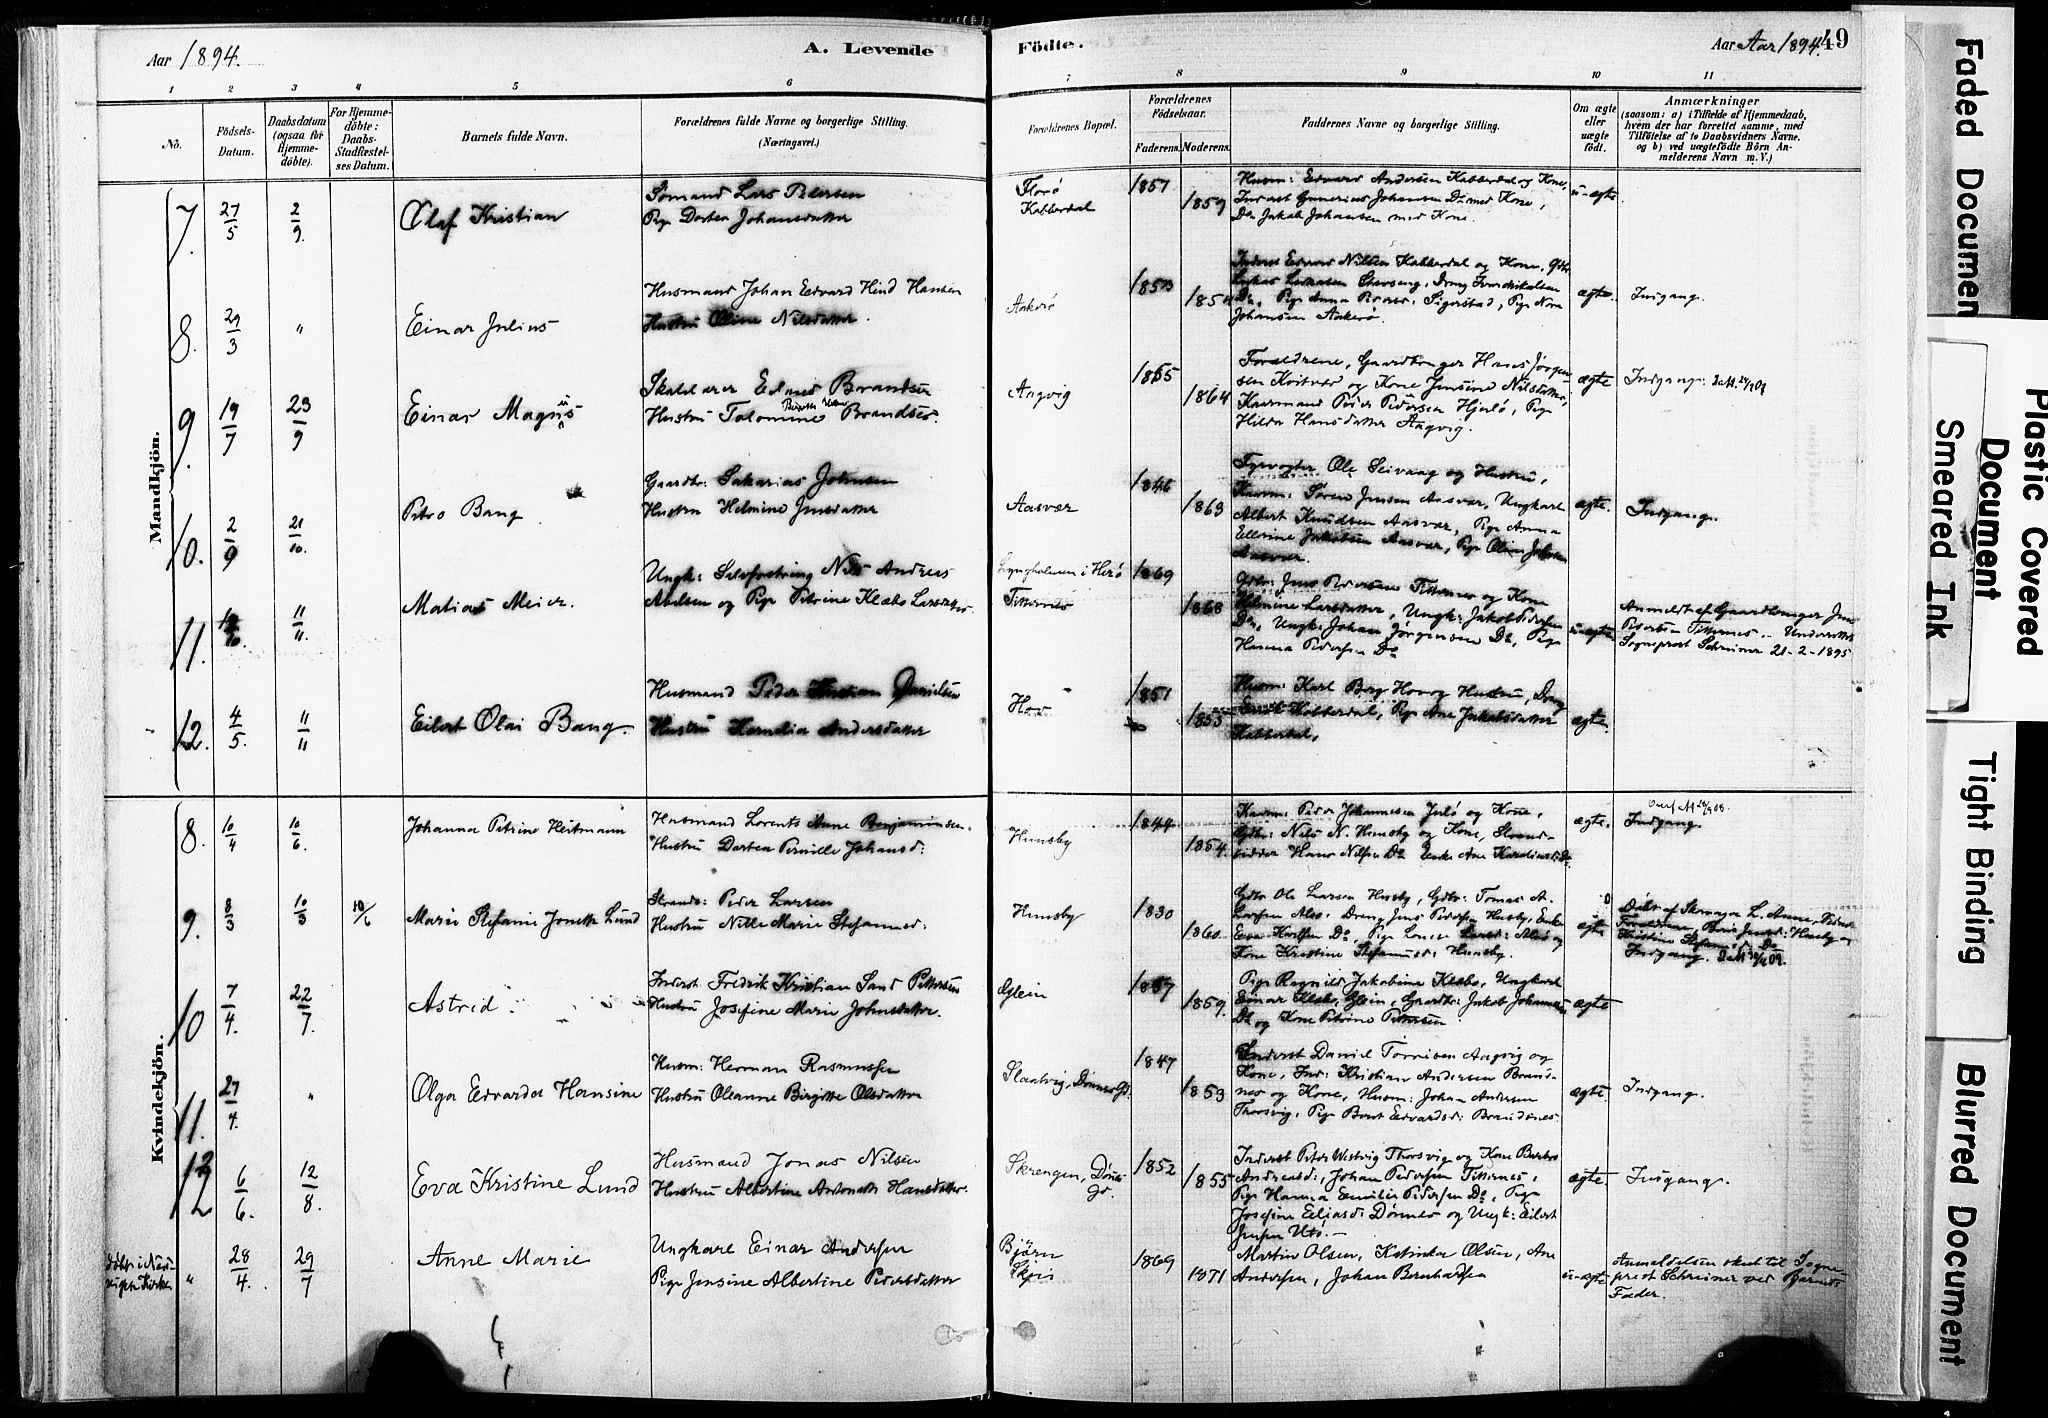 Aar 1894.
A. Levende
Födte.
Aar Aar 1894.
49
1 2 3 4 5 6 7 8 9 10 11
No.
Födsels-
Datum.
Daabsdatum
(ogsaa for
Hjemme-
döbte).
For Hjemme-
döbte:
Daabs-
Stadfæstel-
ses Datum.
Barnets fulde Navn.
Forældrenes fulde Navne og borgerlige Stilling.
(Næringsvei.)
Forældrenes Bopæl.
Forældrenes
Födselsaar.
Faderens. Moderens.
Faddernes Navne og borgerlige Stilling.
Om ægte
eller
uægte
født.
Anmærkninger
(saasom: a) i Tilfælde af Hjemmedaab,
hvem der har forrettet samme, med
Tilføielse af to Daabsvidners Navne.
og b) ved uægtefödte Börn An-
melderens Navn m. V.)
Mandkjön.
7. 27/5 2/9 Olaf Kristian
Sømand Lars Petersen
Pige Dortea Johansdatter
Florø
Kabberdal
1857 1859
Husm: Edvard Andersen Kabberdal og Kone,
Inderst Gunerius Johansen Do med Kone,
Do Jakob Johansen med Kone.
u-ægte.
8. 29/3 " Einar Julius
Husmand Johan Edvard Hind Hansen
Hustru Oline Nilsdatter.
Aakerø
1853 1854
Inderst Edvard Nilsen Kabberdal og Kone,
Do, Pige Anna Sigerstad, Pige
Johansen Aakerø.
ægte. Indgang.
9. 19/7 23/9 Einar Magnus
Brandsen
Hustru Tolomine Brandsen.
Angvig
1865 1864
Forældrene, Gaardbruger Hans Jørgen-
sen Kvitvær og Kone Jensine Nilsdatter,
Kaarmand Peder Pedersen Hjerlø, Pige
Hilda Hansdatter Angvig.
ægte Indgang.
10. 2/9 21/10. Petra Bang
Gaardbr: Sakarias Johnsen
Hustru Helmine Jensdatter
Aasvær
1846 1863
Fyrvogter Ole Seivaag og Hustru,
Søren Jensen Aasvær, Ungkarl
Albert Knudsen Aasvær, Pige Anna
Ellerine Jakobsen Aasvær, Pige Oline
Aasvær.
ægte. Indgang.
11. 11/11. Matias Meier.
Ungk: Nils Andreas
Abelsen og Pige Petrine Klæbo Larsdatter
Lyngholmen i Herø
Titternes
1869 1868
Gdbr: Jens Pedersen Titternes og Kone
Helmine Larsdatter, Ungk: Jakob Pedersen
Do, Ungk: Johan Jørgensen Do, Pige
Hanna Pedersen Do
u-ægte.
Anmeldt af Gaardbruger Jens
Pedersen Titternes. Underrettet
Sogneprest Schreiner 21-2-1895
12. 4/5. 11/11 Eilert Olai Bang.
Husmand Peder Kristian Danielsen
Hustru Kornelia Andersdatter
Hov
1851 1855
Husm: Karl Berg Hov og Hustru, Dreng
Kabberdal, Pige Ane Jakobsdatter
Kabberdal.
ægte.
Kvindekjön.
8. 10/4 10/6. Johanna Petrine Heitmann
Husmand Lorents Arne Benjaminsen.
Hustru Dortea Pernille Johansd:
Hunsby
1844 1854.
Peder Johannesen og Kone,
Gdbr: Nils N. Hunsby og Kone, Strand-
sidder Hans Nilsen Do Enke Ane
ægte. Indgang.
9. 8/3 10/3 10/6 Marie Stefanie Jonette Lund
Strands: Peder Larsen
Hustru Nille Marie Stefansd:
Hunsby
1830 1860.
Gdbr Ole Larsen Husby, Gdbr: Tomas A.
Larsen Alsø, Dreng Jens Pedersen Husby, Enke
Eva Karlsen Do, Pige Lovise Alsø og
Kone Kristine Stefansd: Hunsby.
ægte
Døbt af L. Anne,
Forældrene, Husby og
Kristine Stefansd: Do
Indgang.
10 7/4. 22/7. Astrid.
Inderst Fredrik Kristian Sand Pettersen
Hustru Josefine Marie Johnsdatter.
Glein
1857 1859.
Pige Ragnild Jakobine Klæbo, Ungkarl
Einar Klæbo, Glein, Gaardbr: Jakob Johannesen
Do og Kone Petrine Pettersen
ægte
11. 27/4. " Olga Edvarda Hansine
Husm: Herman Rasmussen
Hustru Oleanne Birgitte Olsdatter
Slaatvig, Dønnes Gd.
1847 1853
Inderst Daniel Tønnesen Angvig og
Kone, Ind: Kristian Andersen Brand-
nes og Kone, Husm: Johan Andersen
Thorsvig, Pige Berit Edvardsd: Brandsnes.
ægte. Indgang.
12 6/6. 12/8. Eva Kristine Lund
Husmand Jonas Nilsen
Hustru Albertine Antonette Hansdatter.
Skrengen, Dønnes
Gd.
1852 1855
Inderst Peter Westvig Thorsvig og Kone
Andreasd:, Johan Pedersen Titternes,
Pige Hanna Emilie Pedersen Do, Pige
Josefine Eliasd: Dønnes og Ungk: Eilert
Jensen
ægte. Indgang.
" 28/4. 29/7 Anne Marie
Ungkarl Einar Andersen
Pige Jensine Albertine Pedersdatter
Bjørn
1869 1871
Martin Olsen, Katinka Olsen, Ane
Andersen, Johan Bernhardsen
u-ægte
Anmeldelsen sendt til Sogne-
prest Schreiner ved Barnets
Fader.
Faded Document
Plastic Covered
Document
Smeared Ink
Tight Binding
Blurred Document